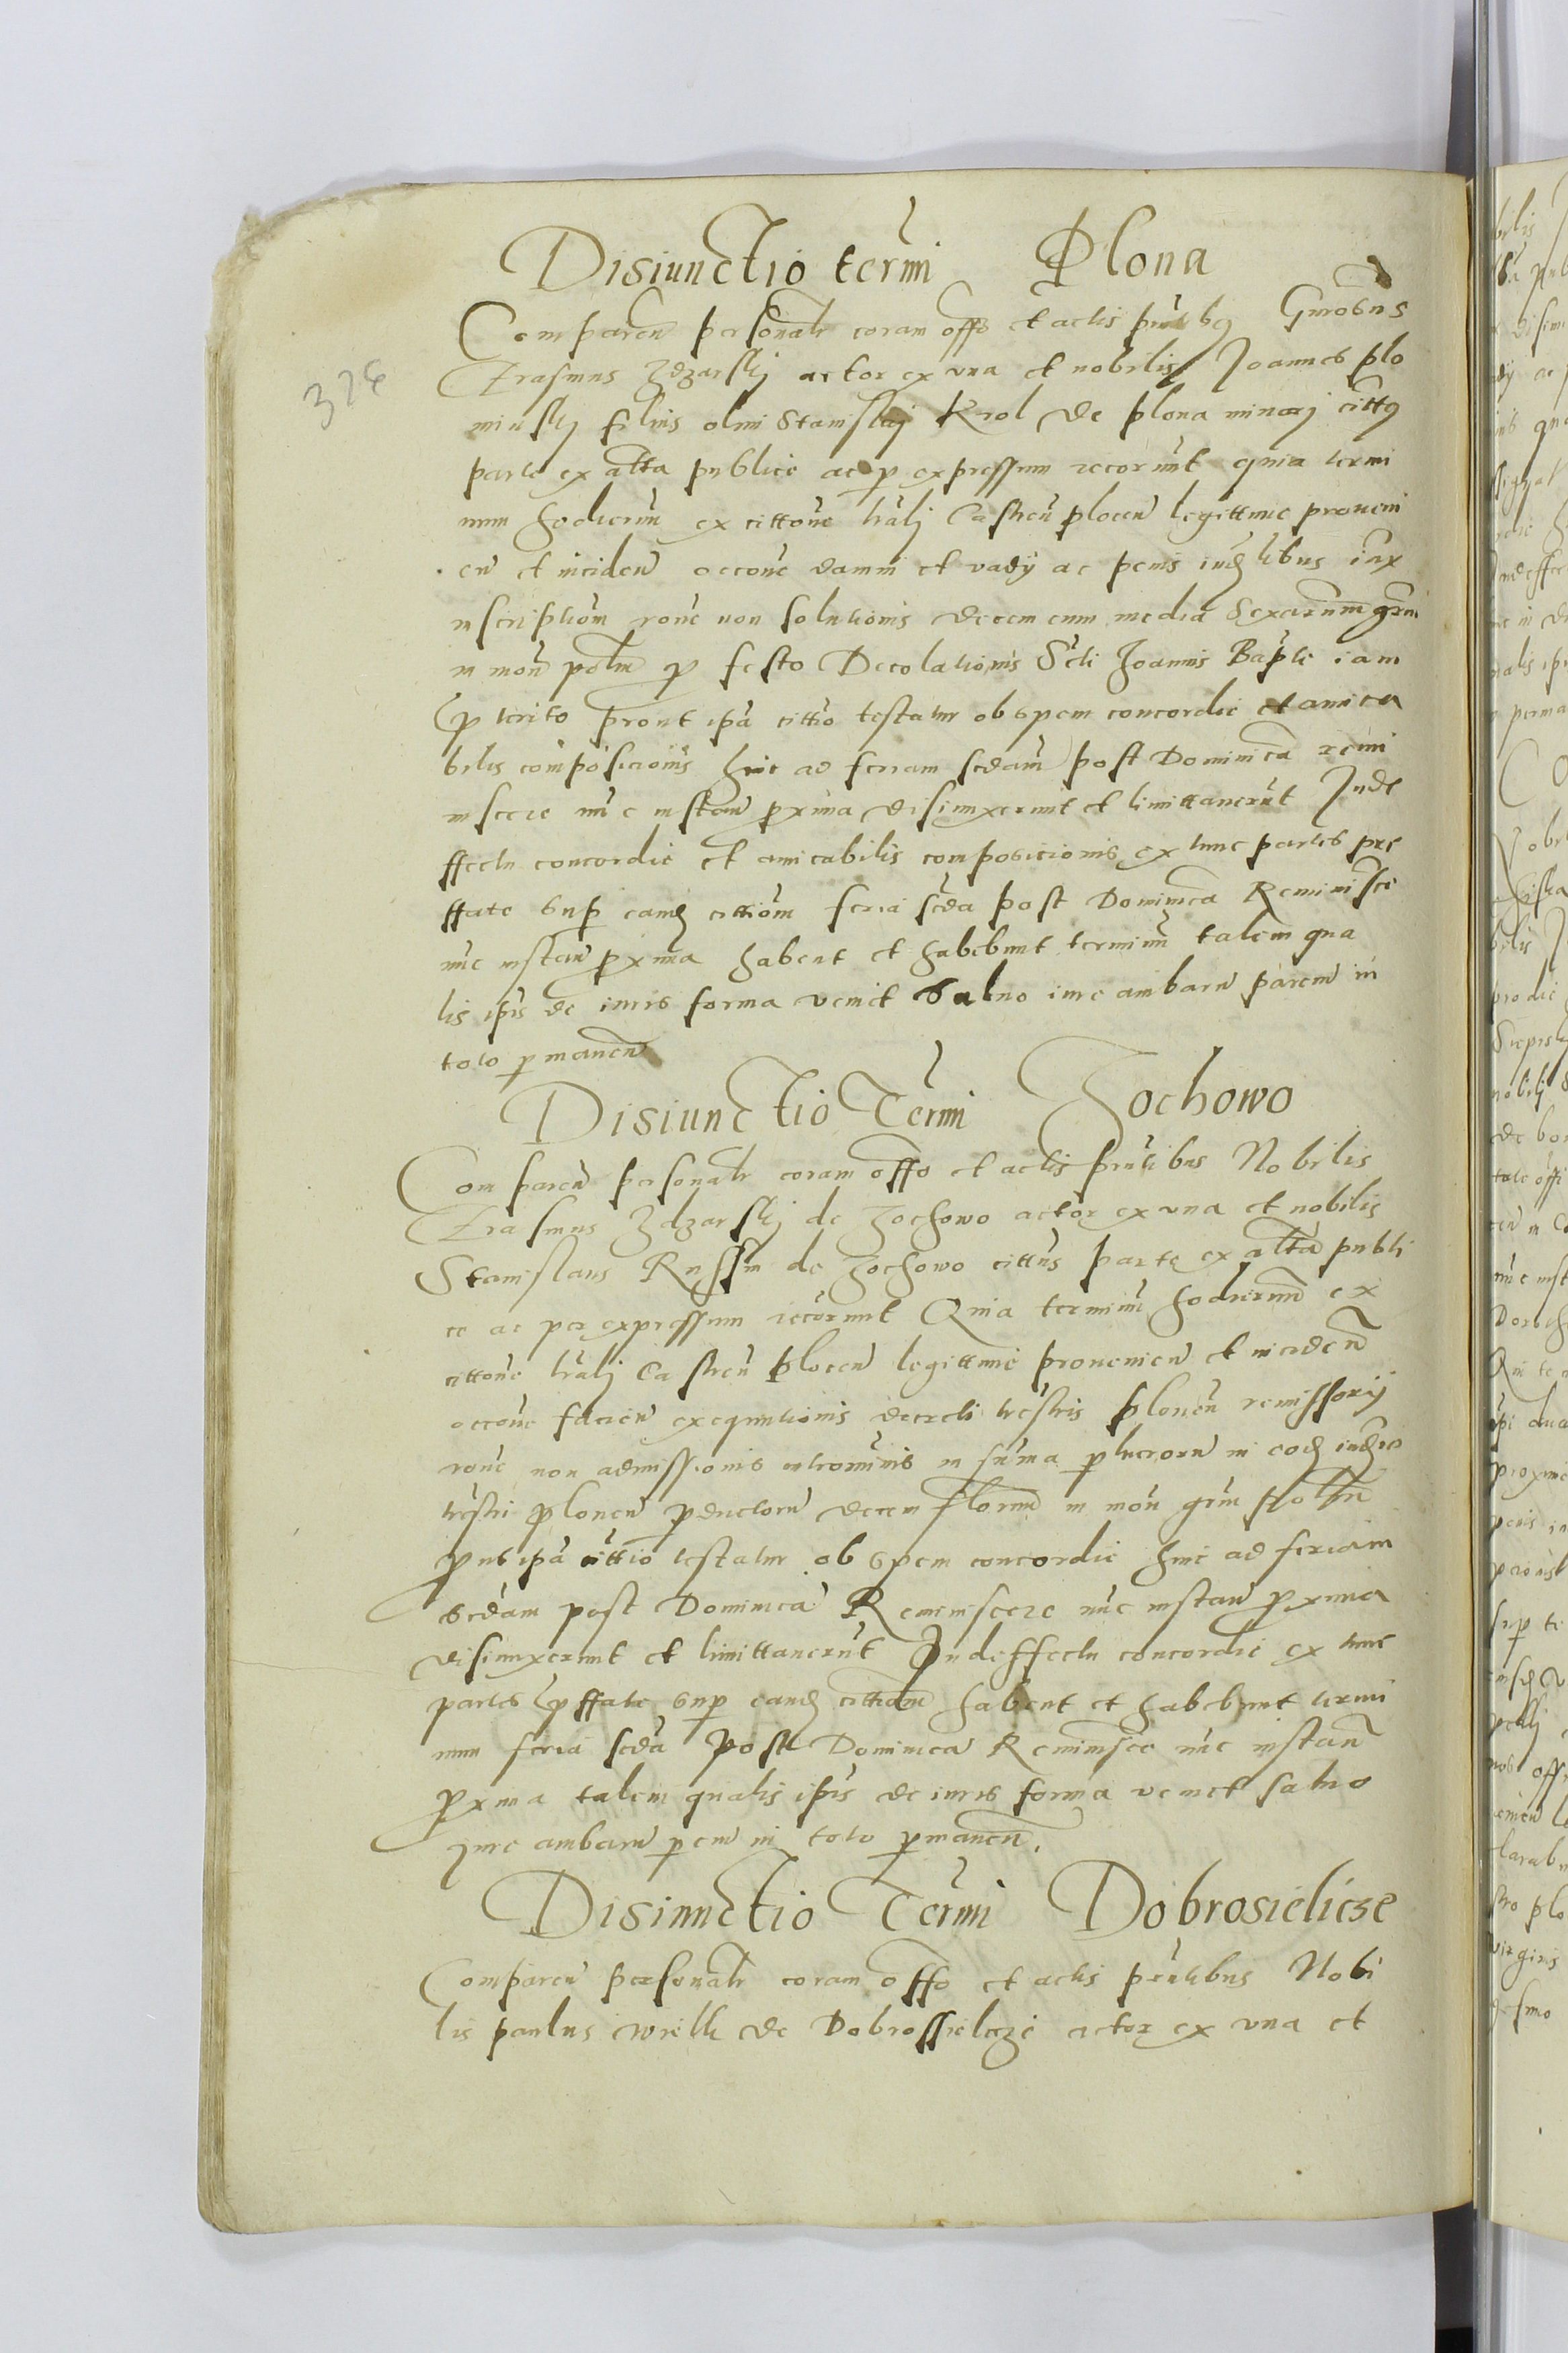 Disiunctio termi Plona
Comparen personalr coram offo et actis pntibq Gnrosus
Erasmus Zdzarskj actor ex vna et nobilis Joannes plo
minskj filius olmi Stanislaj Krol de plona minorj cittq
parte ex alta publice ac p expressum recorunt quia termi
num hodiernu ex cittone lralj Castren plocen legittime proueni
en et inciden occone damni et vadij ac penis iudlibus iux
inscriptiom rone non solutionis decem cum media sexarnum grni
in mon poln p festo Decolationis Scti Joannis Bapte iam
pterito prout ipa cittio testatur ob spem concordie et amica
bilis composicionis hinc ad feriam scdam post Dominica remi
niscere nuc instan pxima disiunxerunt et limittauerut Inde
ffectu concordie et amicabilis composicionis ex tunc partes pre
ffate sup eand cittiom feria scda post Dominica Reminisce
nuc instan pxima habent et habebunt terminu talem qua
lis ipis de iuris forma venit Saluo iure ambaru parem in
toto pmanen
Disiunctio Termi Zochowo
Comparen personalr coram offo et actis pntibus Nobilis
Erasmus Zdzarskj de Zochowo actor ex vna et nobilis
Stanislaus Russin de Zochowo cittus parte ex alta publi
ce ac per expressum recorunt Quia terminu hodiernu ex
cittone lralj Castren plocen legittime prouenien et inciden
occone facien exequutionis decreti trestris plonen remissorij
rone non admissionis introminis in suma plucroru in eod iudio
trestri plonen pductoru decem florenu in mon grni polln
put ipa cittio testatur ob spem concordie hinc ad feriam
scdam post Dominica Reminiscere nuc instan pxima
disiunxerunt et limittauerut Indeffectu concordie ex tunc
partes pffate sup eand cittiom habent et habebunt termi
num feria scda post Dominica Reminisce nuc instan
pxima talem qualis ipis de iuris forma venit saluo
iure ambaru pem in toto pmanen.
Disiunctio Termi Dobrosielicze
Comparen personalr coram offo et actis pntibus Nobi
lis paulus de Dobrossielcze actor ex vna et